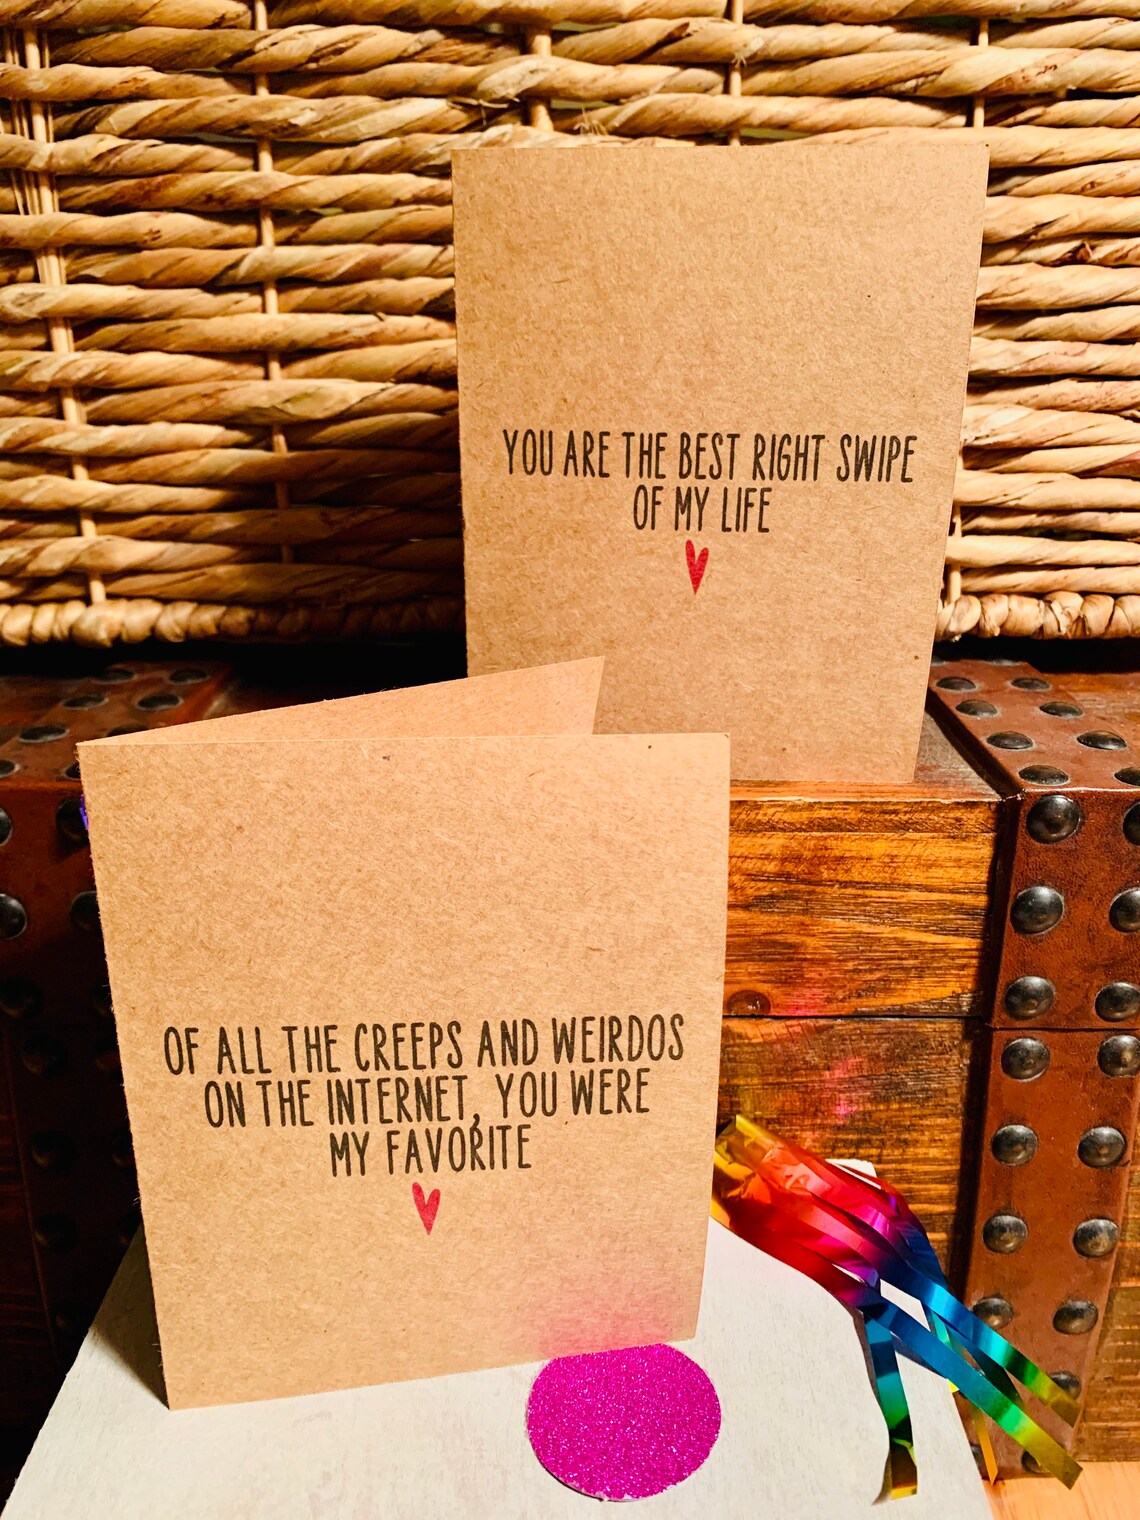 YOU ARE THE BEST RIGHT SWIPE
OF MY LIFE
OF ALL THE CREEPS AND WEIRDOS
ON THE INTERNET, YOU WERE
MY FAVORITE